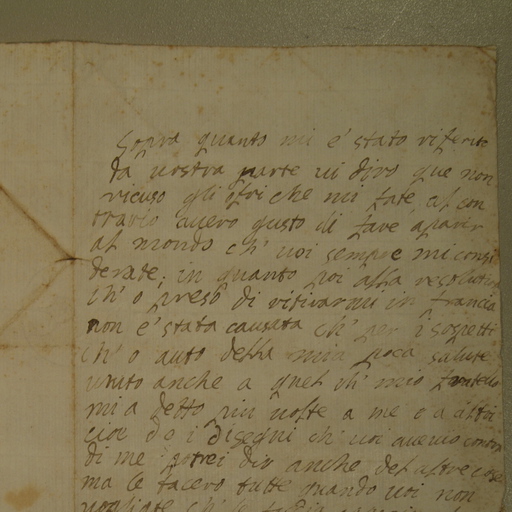 Sopra quanto mi e' stato riferito
da vostra parte vi diro que non
ricuso gli ofri che mi fate, al con
trario avero gusto di fare aparir
al mondo ch' voi sempre mi consi
derate; in quanto poi alla resolution
ch' o preso di ritirarmi in francia
non e' stata causata ch' per i sospetti
ch' o auto della mia poca salute
unito anche a quel ch' mio fratello
mi a detto piu volte a me e a altri
cioe do i disegni ch' voi avevo contra
di me; potrei dir anche del altre cose
ma le tacero tutte quando voi non
vogliate ch' le